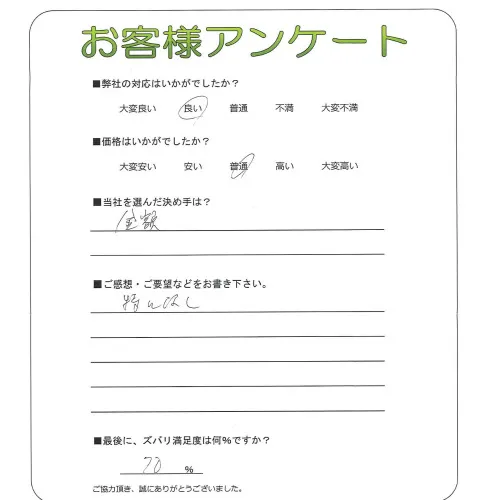 お客様アンケート
■弊社の対応はいかがでしたか？
大変良い 良い 普通 不満 大変不満
■価格はいかがでしたか？
大変安い 安い 普通 高い 大変高い
■当社を選んだ決め手は？
金額
■ご感想・ご要望などをお書き下さい。
特になし
■最後に、ズバリ満足度は何%ですか？
70 %
ご協力頂き、誠にありがとうございました。